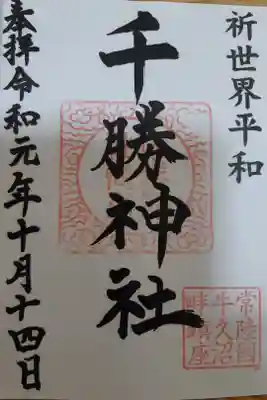 祈世界平和
千勝神社
奉拝令和元年十月十四日
常陸国
牛久沼
畔鎮座